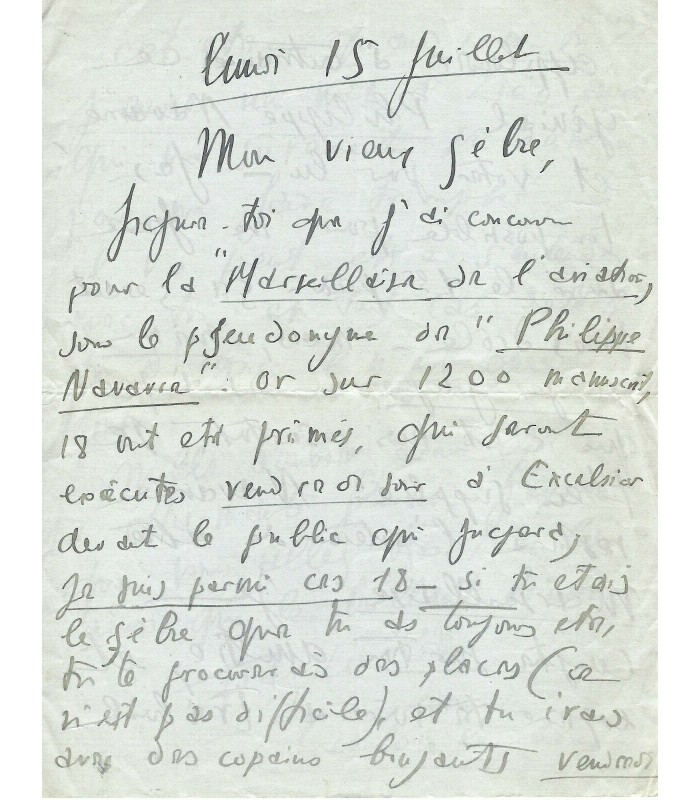 lundi 15 juillet
Mon vieux Gèbre,
figure-toi que j'ai concouru
pour la "Marseillaise de l'aviation,
sous le pseudonyme de "Philippe
Navarre". Or sur 1200 manuscrits,
18 ont été primés, qui seront
exécutés vendredi soir à Excelsior
devant le public qui jugera;
Je suis parmi ces 18 - si tu étais
le gèbre que tu as toujours été,
tu te procurerais des places (ce
n'est pas difficile), et tu irais
avec des copains bruyants vendredi